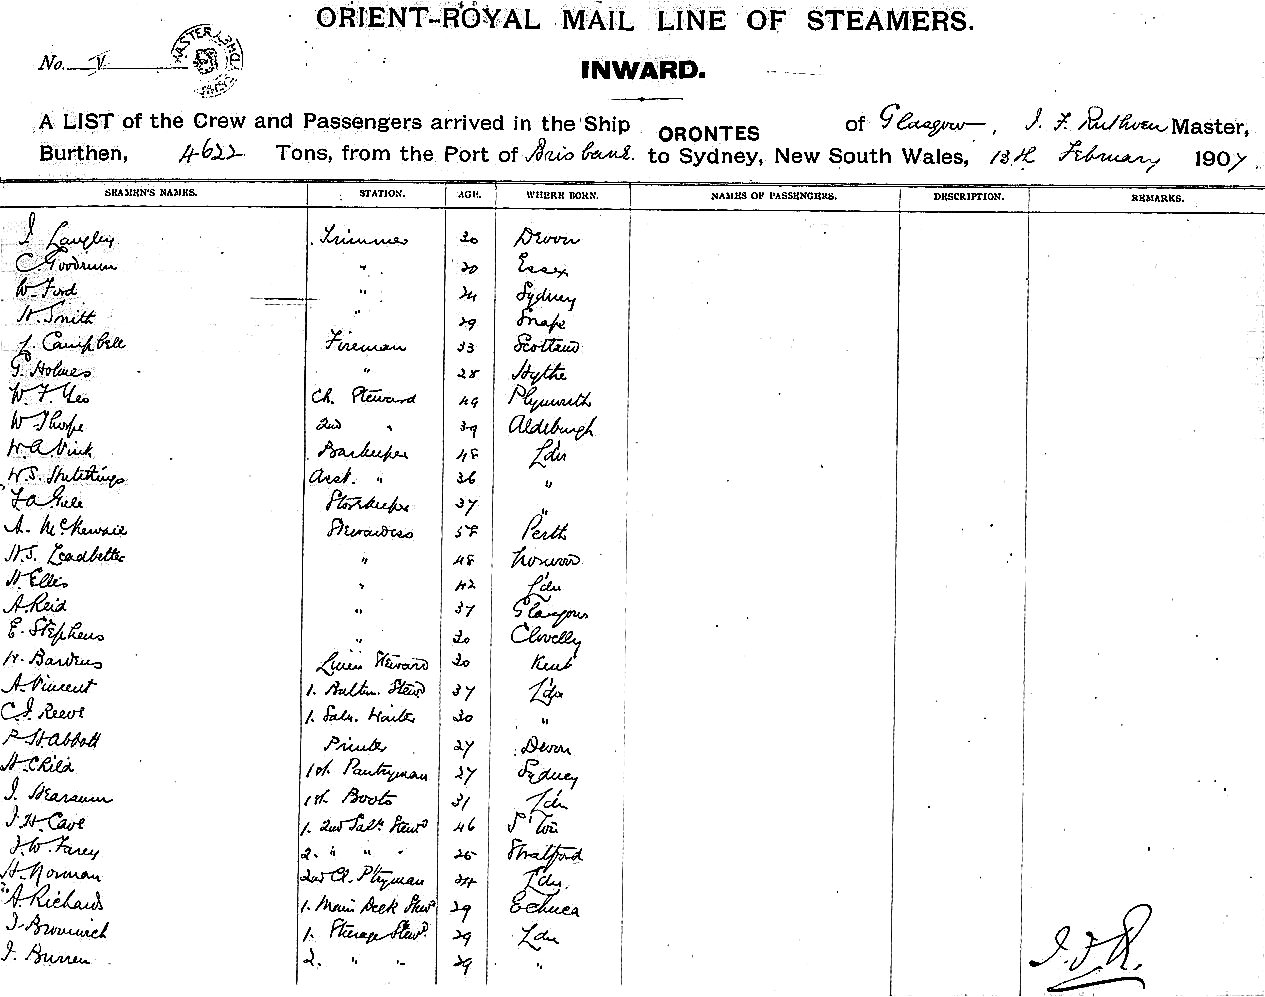 ORIENT-ROYAL MAIL LINE OF STEAMERS.
No. V
INWARD.
A LIST of the Crew and Passengers arrived in the Ship ORONTES of Glasgow, J. F. Ruthven Master,
Burthen, 4622 Tons, from the Port of Brisbane to Sydney, New South Wales, 13th February 1907.
SEAMEN'S NAMES. STATION. AGE. WHERE BORN. NAMES OF PASSENGERS. DESCRIPTION. REMARKS.
J Langley Trimmer 30 Devon
C Goodrum " Essex
W. Ford " 24 Sydney
H. Smith " 29 Snape
J. Campbell Fireman 33 Scotland
G. Holmes " 28 Hythe
W. F. Yeo Ch. Steward 49 Plymouth
W Thorpe 2nd " 39 Aldeburgh
W. A. Vink Barkeeper 48 Ldn
W. S. Hutchings Asst. " 36 "
F A Storekeeper 37 "
A. Stewardess 58 Perth
H. S. Leadbetter " 48
H. Ellis " 42 Ldn
A. Reid " 37 Glasgow
E. Stephens " 30 Clovelly
H. Linen Steward 30 Kent
A. Vincent 1. Stewd 37 Ldn
C. J. Reeve 1. Saln. Waiter 30 "
P. H. Abbott Printer 27 Devon
H. Child 1st. Pantryman 27 Sydney
J. 1st. Boots 31 Ldn
J. H. Cave 1. 2nd Saln. Stewd 46
J. W. Farey 2. " " " 25 Stratford
H. Norman 2nd Cl. Ptryman 24 Ldn.
A. Richards 1. Main Deck Stewd 29 Echuca
J. Bromwich 1. Steerage Stewd. 29 Ldn
J. Burren 2. " " 29 "
J. F. R.